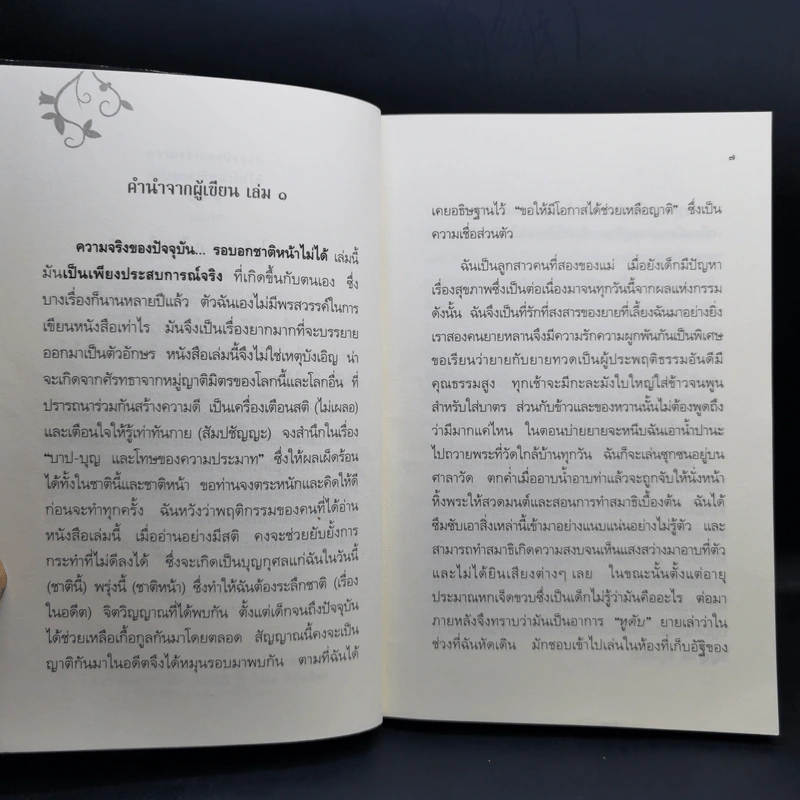 คำนำจากผู้เขียน เล่ม ๑
ความจริงของปัจจุบัน... รอบอกชาติหน้าไม่ได้ เล่มนี้
มันเป็นเพียงประสบการณ์จริง ที่เกิดขึ้นกับตนเอง ซึ่ง
บางเรื่องก็นานหลายปีแล้ว ตัวฉันเองไม่มีพรสวรรค์ในการ
เขียนหนังสือเท่าไร มันจึงเป็นเรื่องยากมากที่จะบรรยาย
ออกมาเป็นตัวอักษร หนังสือเล่มนี้จึงไม่ใช่เหตุบังเอิญ น่า
จะเกิดจากศรัทธาจากหมู่ญาติมิตรของโลกนี้และโลกอื่น ที่
ปรารถนาร่วมกันสร้างความดี เป็นเครื่องเตือนสติ (ไม่เผลอ)
และเตือนใจให้รู้เท่าทันกาย (สัมปชัญญะ) จงสำนึกในเรื่อง
"บาป-บุญ และโทษของความประมาท" ซึ่งให้ผลเผ็ดร้อน
ได้ทั้งในชาตินี้และชาติหน้า ขอท่านจงตระหนักและคิดให้ดี
ก่อนจะทำทุกครั้ง ฉันหวังว่าพฤติกรรมของคนที่ได้อ่าน
หนังสือเล่มนี้ เมื่ออ่านอย่างมีสติ คงจะช่วยยับยั้งการ
กระทำที่ไม่ดีลงได้ ซึ่งจะเกิดเป็นบุญกุศลแก่ฉันในวันนี้
(ชาตินี้) พรุ่งนี้ (ชาติหน้า) ซึ่งทำให้ฉันต้องระลึกชาติ (เรื่อง
ในอดีต) จิตวิญญาณที่ได้พบกัน ตั้งแต่เด็กจนถึงปัจจุบัน
ได้ช่วยเหลือเกื้อกูลกันมาโดยตลอด สัญญาณนี้คงจะเป็น
ญาติกันมาในอดีตจึงได้หมุนรอบมาพบกัน ตามที่ฉันได้
๗
เคยอธิษฐานไว้ "ขอให้มีโอกาสได้ช่วยเหลือญาติ" ซึ่งเป็น
ความเชื่อส่วนตัว
ฉันเป็นลูกสาวคนที่สองของแม่ เมื่อยังเด็กมีปัญหา
เรื่องสุขภาพซึ่งเป็นต่อเนื่องมาจนทุกวันนี้จากผลแห่งกรรม
ดังนั้น ฉันจึงเป็นที่รักที่สงสารของยายที่เลี้ยงฉันมาอย่างยิ่ง
เราสองคนยายหลานจึงมีความรักความผูกพันกันเป็นพิเศษ
ขอเรียนว่ายายกับยายทวดเป็นผู้ประพฤติธรรมอันดีมี
คุณธรรมสูง ทุกเช้าจะมีกะละมังใบใหญ่ใส่ข้าวจนพูน
สำหรับใส่บาตร ส่วนกับข้าวและของหวานนั้นไม่ต้องพูดถึง
ว่ามีมากแค่ไหน ในตอนบ่ายยายจะหนีบฉันเอาน้ำปานะ
ไปถวายพระที่วัดใกล้บ้านทุกวัน ฉันก็จะเล่นซุกซนอยู่บน
ศาลาวัด ตกค่ำเมื่ออาบน้ำอาบท่าแล้วจะถูกจับให้นั่งหน้า
หิ้งพระให้สวดมนต์และสอนการทำสมาธิเบื้องต้น ฉันได้
ซึมซับเอาสิ่งเหล่านี้เข้ามาอย่างแนบแน่นอย่างไม่รู้ตัว และ
สามารถทำสมาธิเกิดความสงบจนเห็นแสงสว่างมาอาบที่ตัว
และไม่ได้ยินเสียงต่างๆ เลย ในขณะนั้นตั้งแต่อายุ
ประมาณหกเจ็ดขวบซึ่งเป็นเด็กไม่รู้ว่ามันคืออะไร ต่อมา
ภายหลังจึงทราบว่ามันเป็นอาการ "หูดับ" ยายเล่าว่าใน
ช่วงที่ฉันหัดเดิน มักชอบเข้าไปเล่นในห้องที่เก็บอัฐิของ